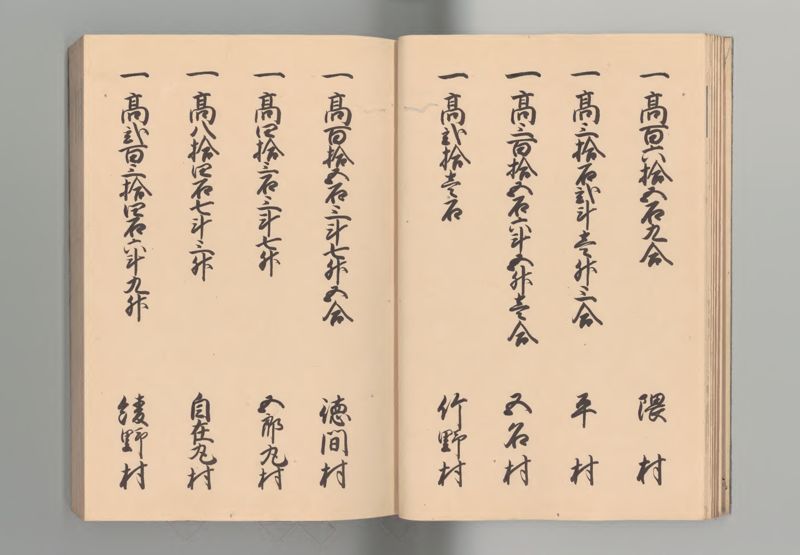 一 高百六拾五石九合 隈村
一 高三拾石弐斗壱升三合 平村
一 高三百拾五石六斗五升壱合 五名村
一 高弐拾壱石 竹野村
一 高百拾五石三斗七升五合 徳間村
一 高四拾三石三斗七升 五郎丸村
一 高八拾四石七斗三升 自在丸村
一 高弐百三拾四石六斗九升 綾野村